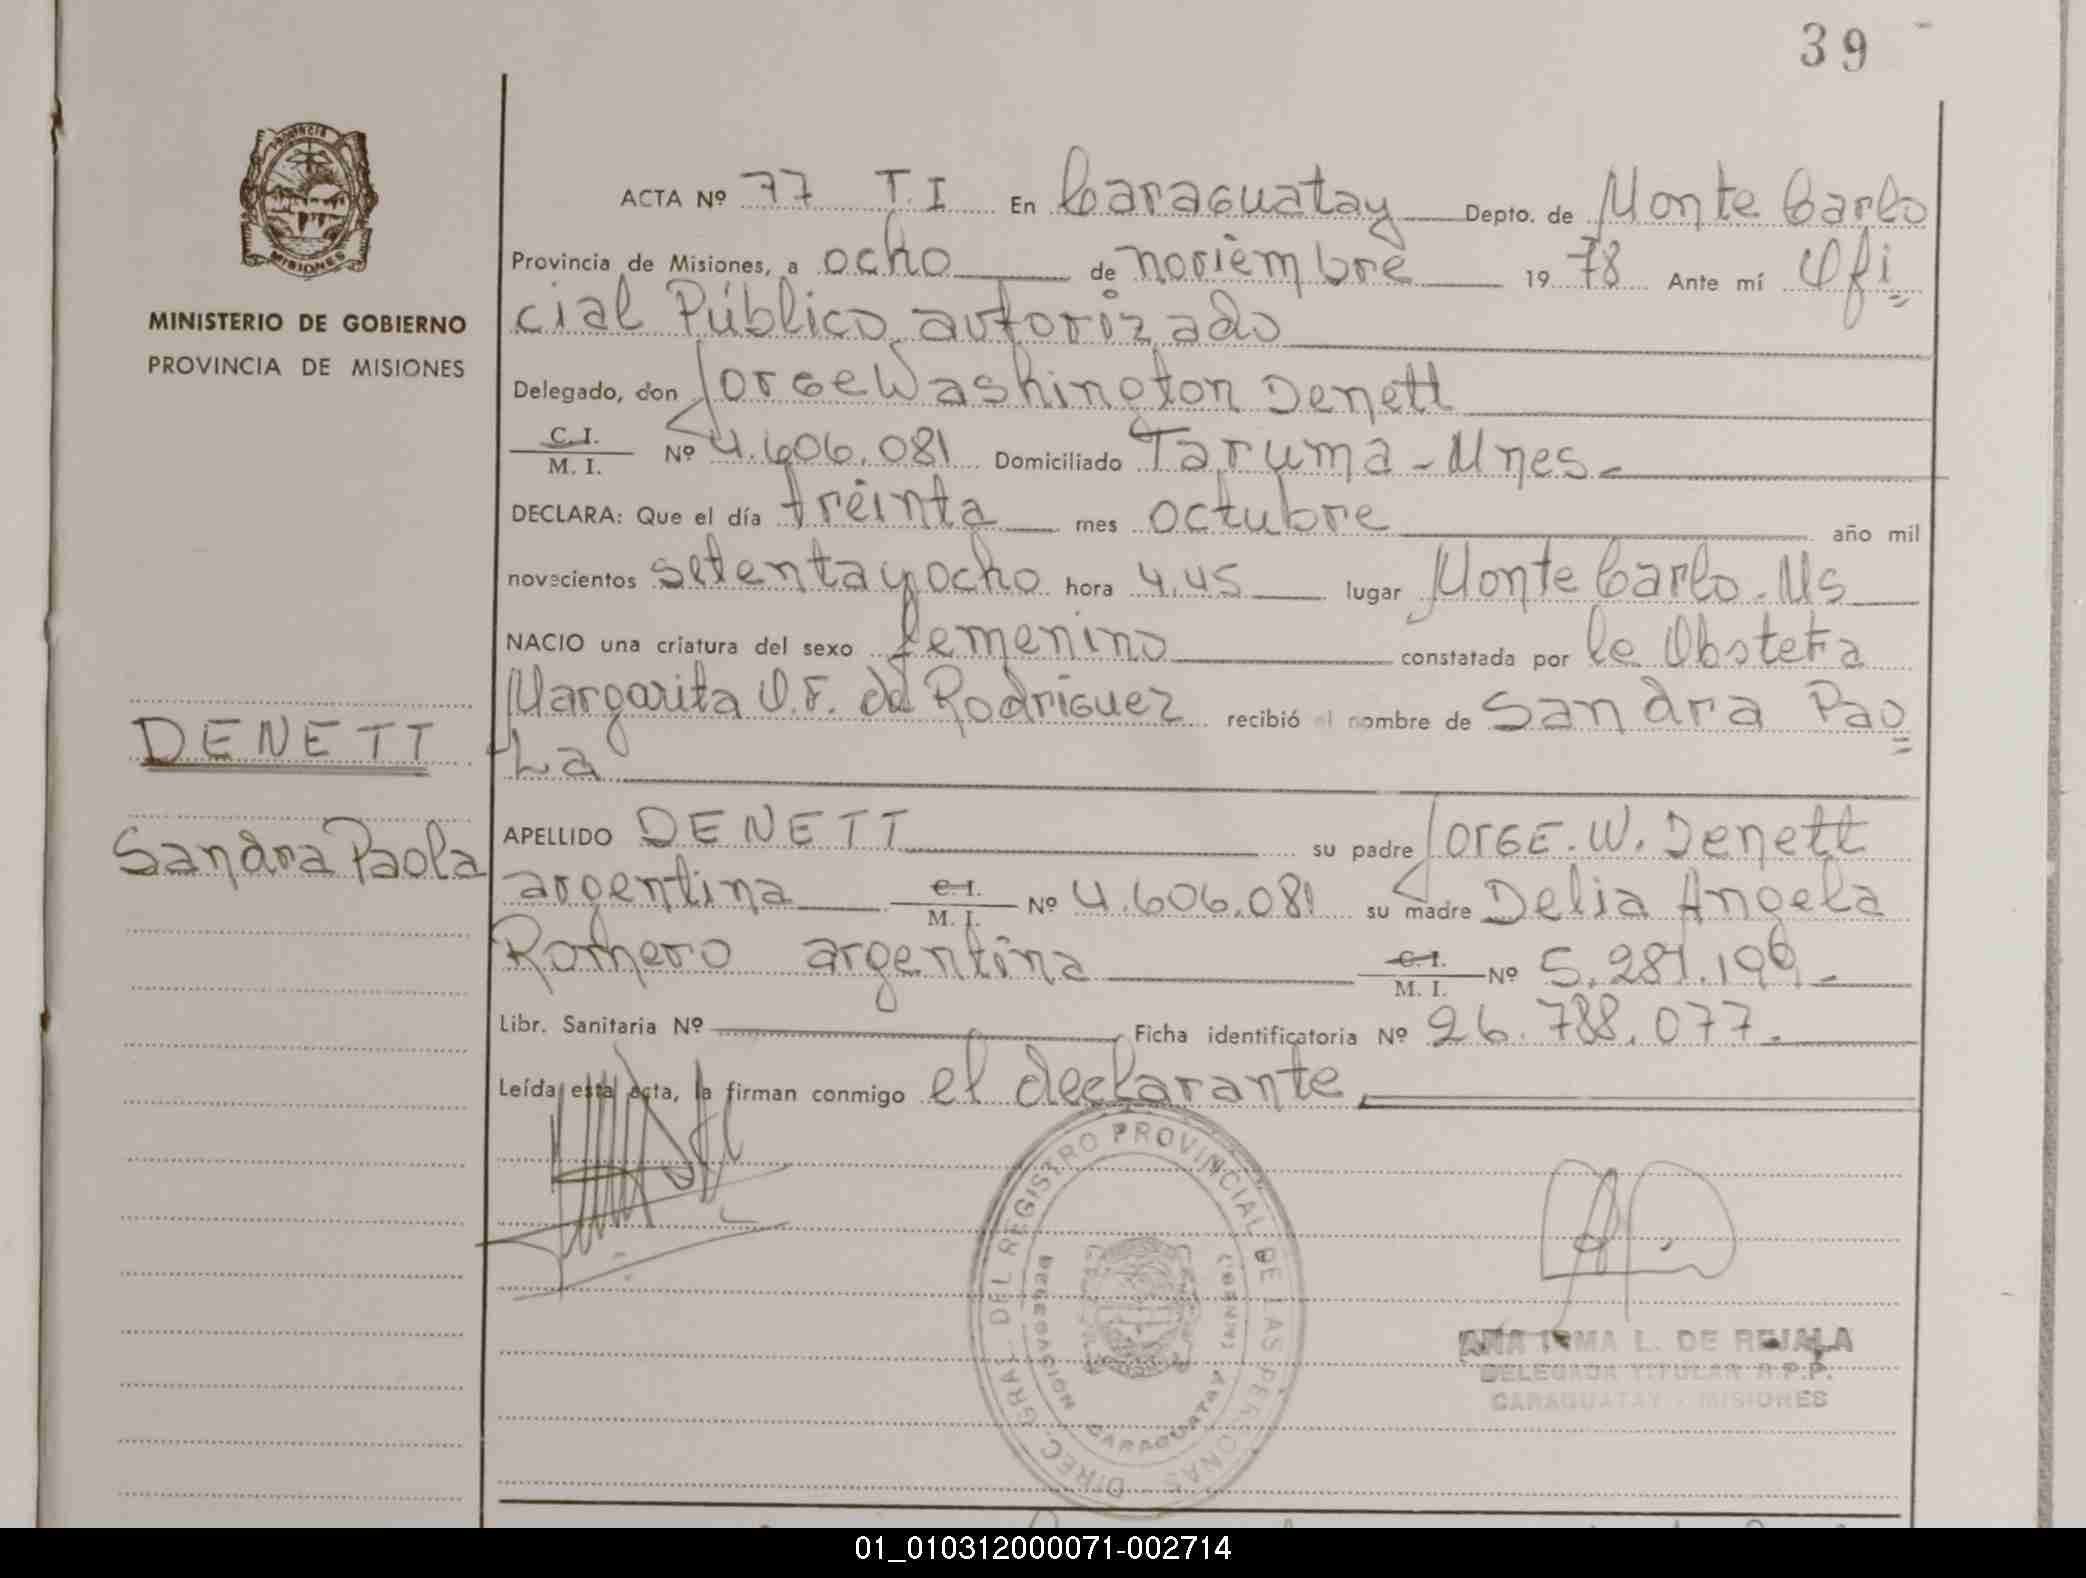 39
PROVINCIA
MISIONES
MINISTERIO DE GOBIERNO
PROVINCIA DE MISIONES
DENETT
Sandra Paola
ACTA Nº 77 T.I En Caraguatay Depto. de Monte Carlo
Provincia de Misiones, a ocho de noviembre 1978 Ante mí Ofi
cial Público autorizado
Delegado, don Jorge Washington Denett
C.I. M. I. Nº 4.606.081 Domiciliado Taruma - Mnes.
DECLARA: Que el día treinta mes octubre año mil
novecientos setenta y ocho hora 4,45 lugar Monte Carlo. Ms
NACIO una criatura del sexo femenino constatada por la Obstetra
Margarita O.F. de Rodriguez recibió el nombre de Sandra Pao
La
APELLIDO DENETT su padre JORGE. W. Denett
argentina C.I. M. I. Nº 4.606.081 su madre Delia Angela
Romero argentina C.I. M. I. Nº 5.281.
Libr. Sanitaria Nº Ficha identificatoria Nº 26.788.077.
Leída esta acta, la firman conmigo el declarante
DIREC. GRAL. DEL REGISTRO PROVINCIAL DE LAS PERSONAS
DELEGACIÓN CARAGUATAY (MNES.)
ANA IRMA L. DE REJALA
DELEGADA TITULAR R.P.P.
CARAGUATAY - MISIONES
01_010312000071-002714